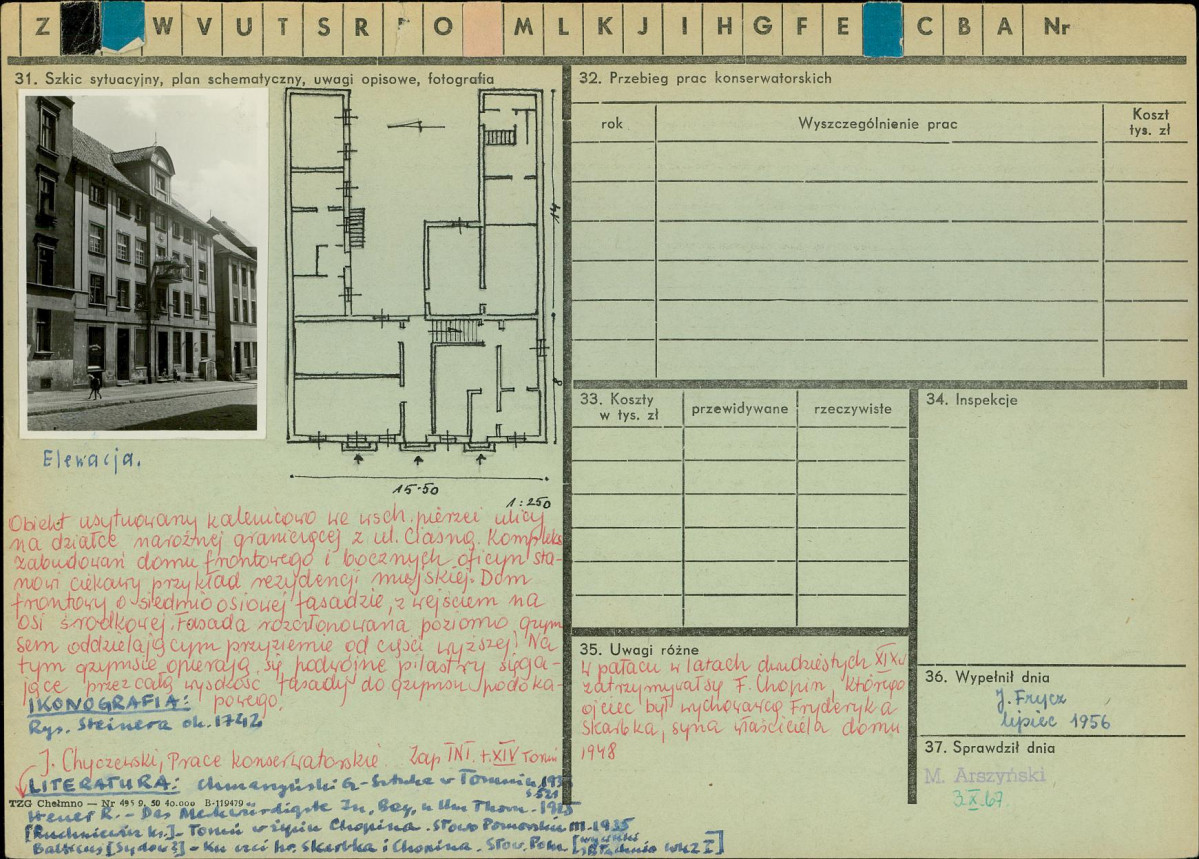 Z W V U T S R P O M L K J I H G F E C B A Nr
31. Szkic sytuacyjny, plan schematyczny, uwagi opisowe, fotografia
Elewacja.
14
8
15·50
1:250
Obiekt usytuowany kalenicowo we wsch. pierzei ulicy
na działce narożnej graniczącej z ul. Ciasną. Kompleks
zabudowań domu frontowego i bocznych oficyn sta-
nowi ciekawy przykład rezydencji miejskiej. Dom
frontowy o siedmio osiowej fasadzie, z wejściem na
osi środkowej. Fasada rozczłonowana poziomo gzym
sem oddzielającym przyziemie od części wyższej. Na
tym gzymsie opierają się podwójne pilastry sięga-
jące przez całą wysokość fasady do gzymsu podoka-
powego.
IKONOGRAFIA:
Rys. Steinera ok. 1742
J. Chyczewski, Prace konserwatorskie Zap TNT. t. XIV Toruń 1948
LITERATURA: Chmarzyński G - Sztuka w Toruniu 193
s 521
TZG Chełmno — Nr 495 9. 50 40.000 B-119479
Heuer R. - Das Merkwürdigste In, Bey, u Um Thorn - 1925
[Ruchniewicz ks.] - Toruń w życiu Chopina. Słowo Pomorskie III. 1935
Balticus [Sydow?] - Ku czci hr. Skarbka i Chopina. Słow. Pom.
32. Przebieg prac konserwatorskich
rok Wyszczególnienie prac Koszt
tys. zł
33. Koszty
w tys. zł przewidywane rzeczywiste
34. Inspekcje
35. Uwagi różne
W pałacu w latach dwudziestych XIX w
zatrzymywał się F. Chopin, którego
ojciec był wychowawcą Fryderyka
Skarbka, syna właściciela domu
36. Wypełnił dnia
J. Frycz
lipiec 1956
37. Sprawdził dnia
M. Arszyński
3.X.67